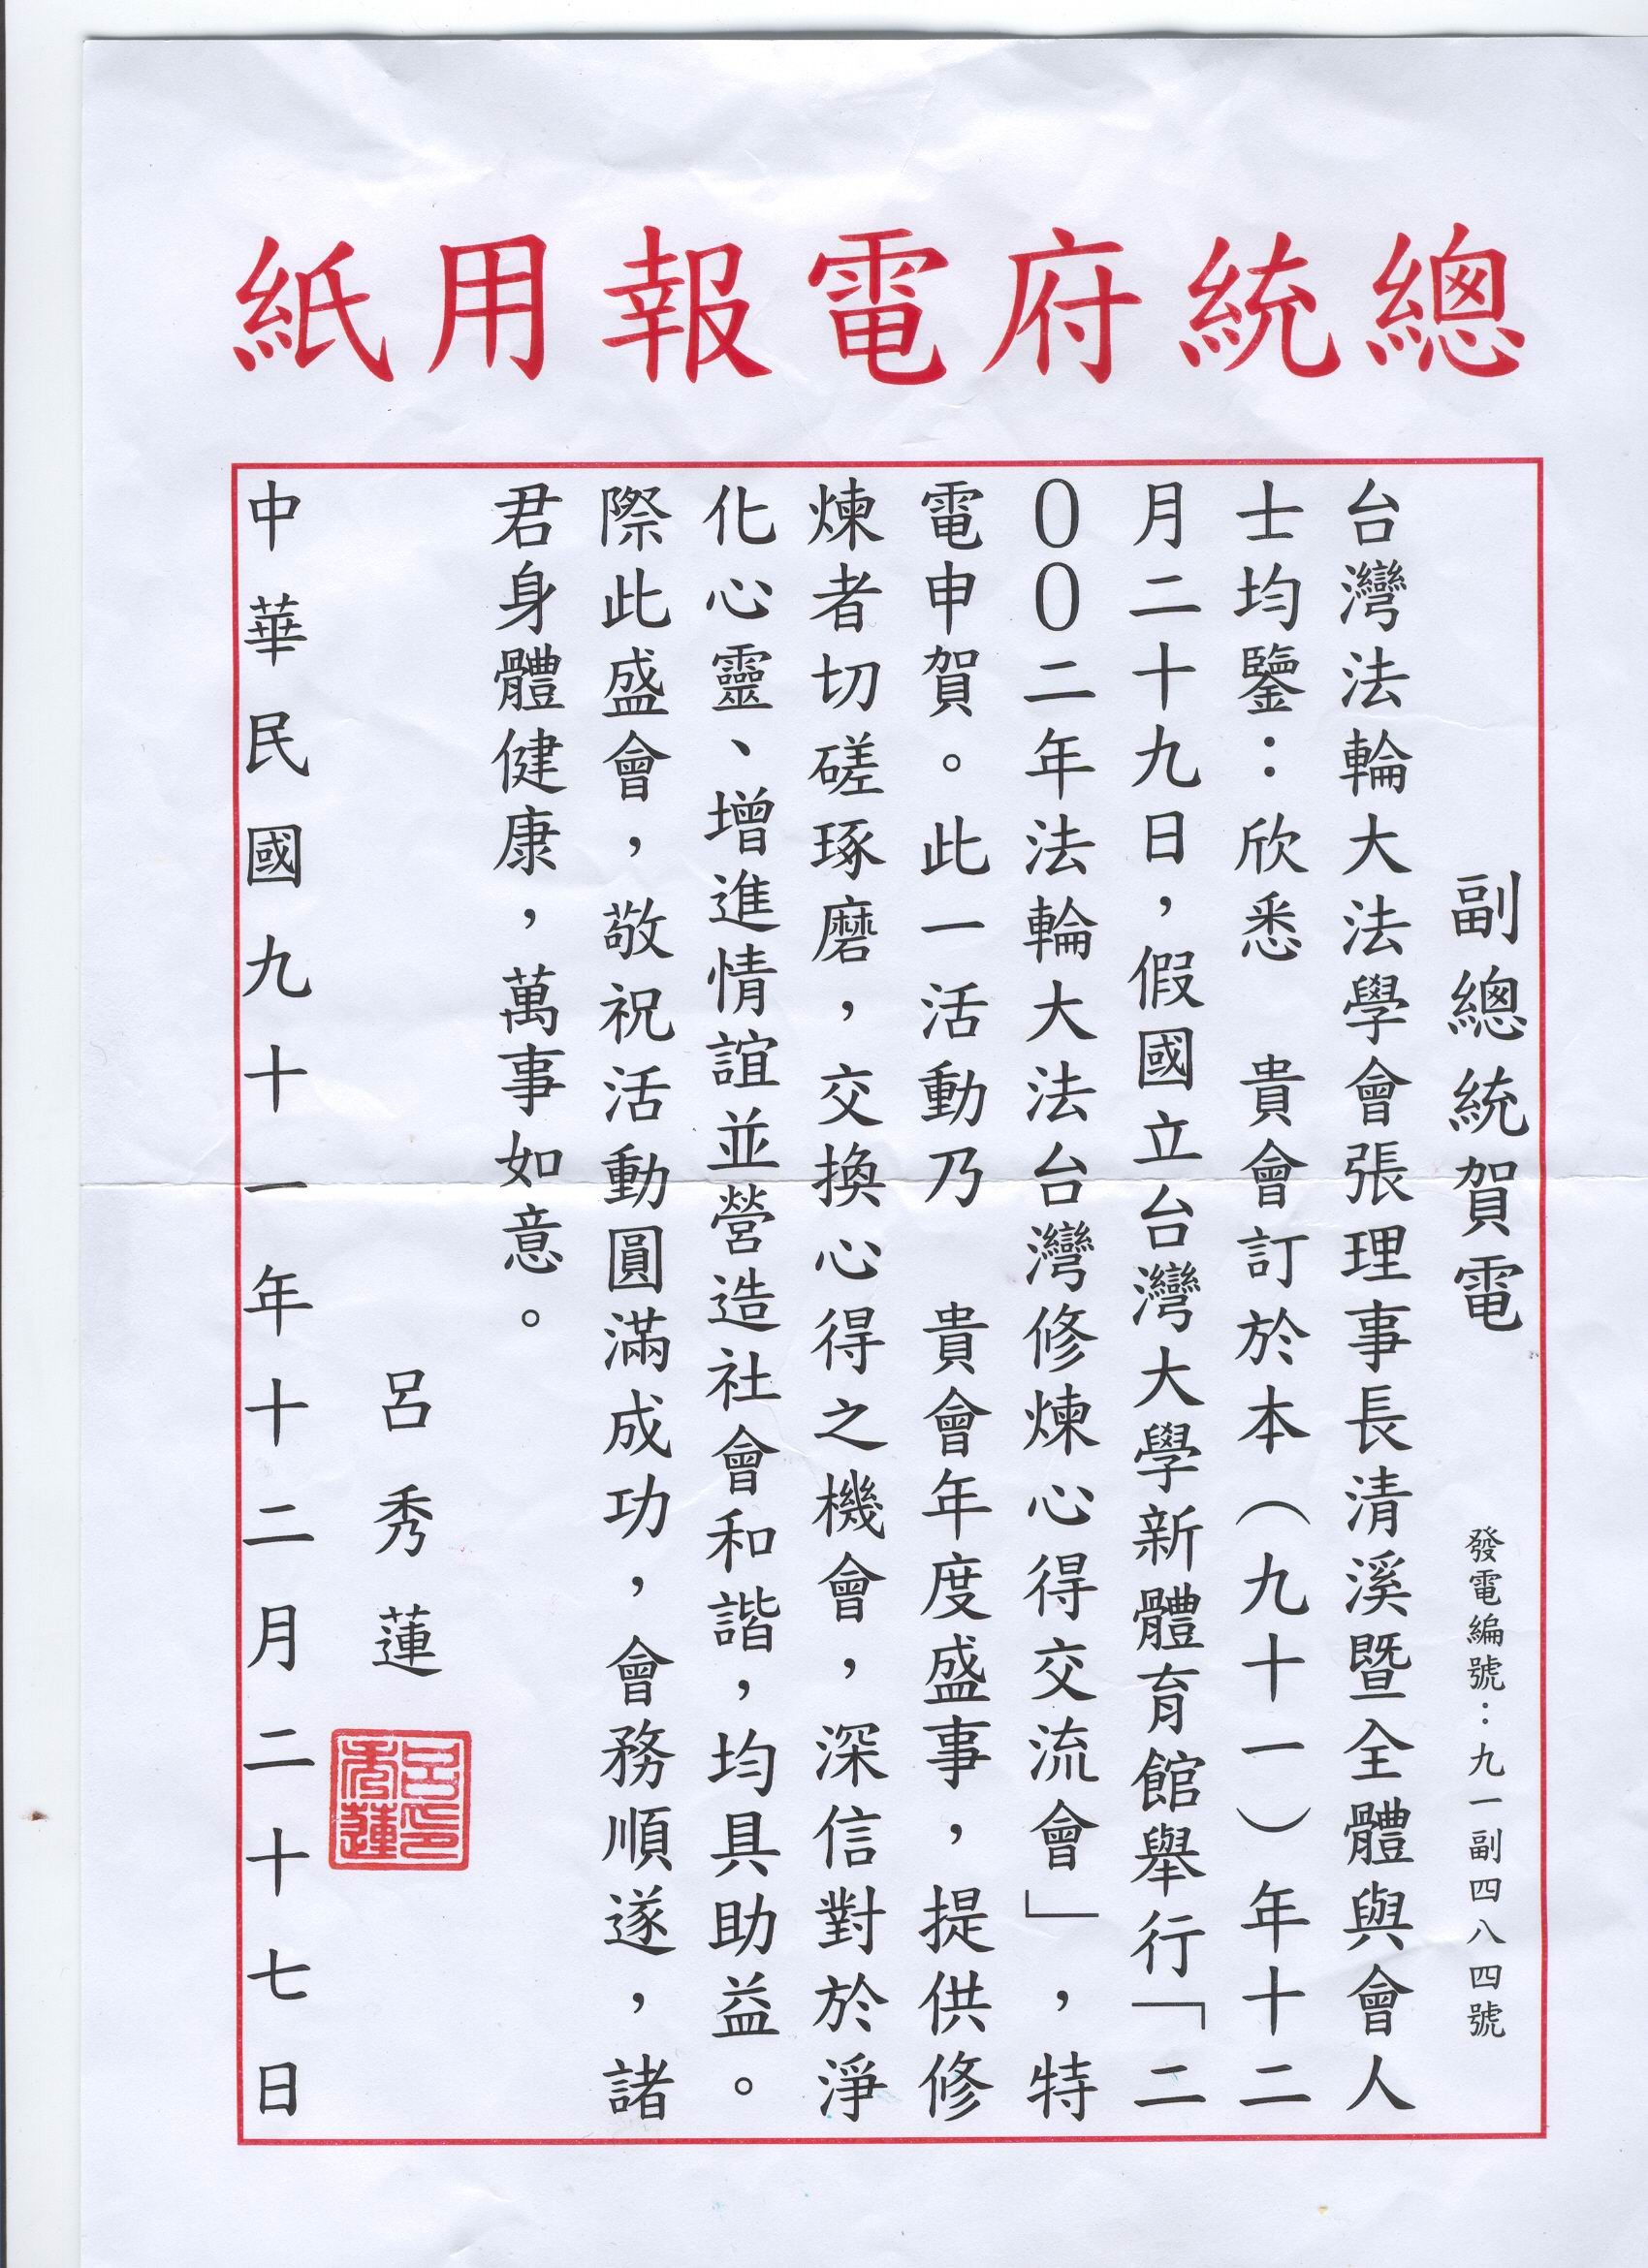 總統府電報用紙
副總統賀電
發電編號：九一副四八四號
台灣法輪大法學會張理事長清溪暨全體與會人
士均鑒：欣悉　貴會訂於本（九十一）年十二
月二十九日，假國立台灣大學新體育館舉行「二
００二年法輪大法台灣修煉心得交流會」，特
電申賀。此一活動乃　貴會年度盛事，提供修
煉者切磋琢磨，交換心得之機會，深信對於淨
化心靈、增進情誼並營造社會和諧，均具助益。
際此盛會，敬祝活動圓滿成功，會務順遂，諸
君身體健康，萬事如意。
呂秀蓮
呂秀蓮印
中華民國九十一年十二月二十七日